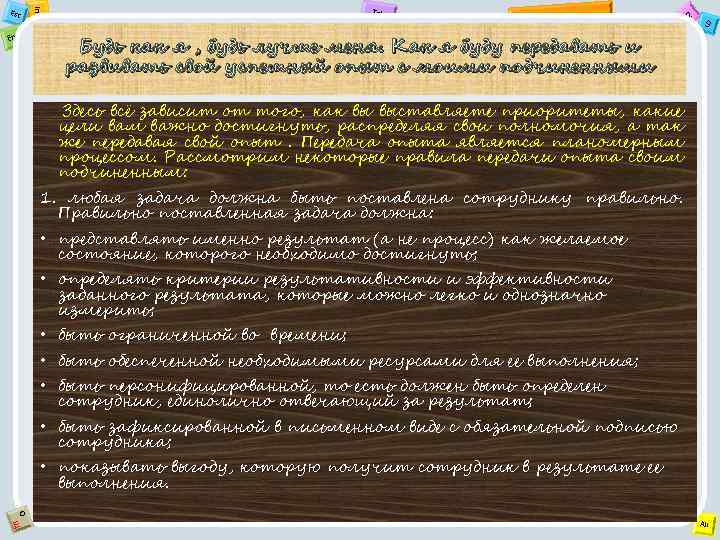 Будь как я , будь лучше меня. Как я буду передавать и
развивать свой успешный опыт с моими подчиненными
Здесь всё зависит от того, как вы выставляете приоритеты, какие
цели вам важно достигнуть, распределяя свои полномочия, а так
же передавая свой опыт . Передача опыта является планомерным
процессом. Рассмотрим некоторые правила передачи опыта своим
подчиненным:
1. любая задача должна быть поставлена сотруднику правильно.
Правильно поставленная задача должна:
• представлять именно результат (а не процесс) как желаемое
состояние, которого необходимо достигнуть;
• определять критерии результативности и эффективности
заданного результата, которые можно легко и однозначно
измерить;
• быть ограниченной во времени;
• быть обеспеченной необходимыми ресурсами для ее выполнения;
• быть персонифицированной, то есть должен быть определен
сотрудник, единолично отвечающий за результат;
• быть зафиксированной в письменном виде с обязательной подписью
сотрудника;
• показывать выгоду, которую получит сотрудник в результате ее
выполнения.